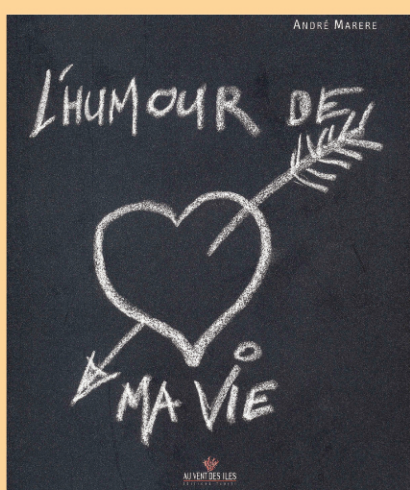 ANDRÉ MARERE
L'HUMOUR DE
MA VIE
AU VENT DES ILES